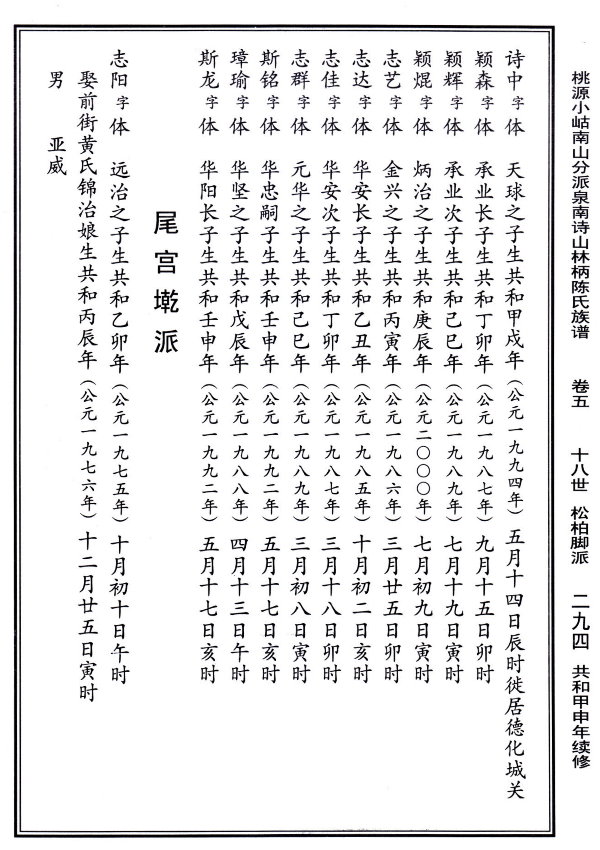 桃源小岵南山分派泉南诗山林柄陈氏族谱 卷五 十八世 松柏脚派 二九四 共和甲申年续修
诗中字体 天球之子生共和甲戌年(公元一九九四年)五月十四日辰时徙居德化城关
颖森字体 承业长子生共和丁卯年(公元一九八七年)九月十五日卯时
颖辉字体 承业次子生共和己巳年(公元一九八九年)七月十九日寅时
颖焜字体 炳治之子生共和庚辰年(公元二〇〇〇年)七月初九日寅时
志艺字体 金兴之子生共和丙寅年(公元一九八六年)三月廿五日卯时
志达字体 华安长子生共和乙丑年(公元一九八五年)十月初二日亥时
志佳字体 华安次子生共和丁卯年(公元一九八七年)三月十八日卯时
志群字体 元华之子生共和己巳年(公元一九八九年)三月初八日寅时
斯铭字体 华忠嗣子生共和壬申年(公元一九九二年)五月十七日亥时
璋瑜字体 华坚之子生共和戊辰年(公元一九八八年)四月十三日午时
斯龙字体 华阳长子生共和壬申年(公元一九九二年)五月十七日亥时
尾宫墘派
志阳字体 远治之子生共和乙卯年(公元一九七五年)十月初十日午时
娶前街黄氏锦治娘生共和丙辰年(公元一九七六年)十二月廿五日寅时
男 亚威